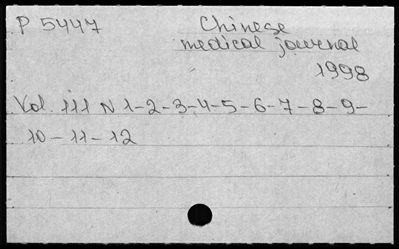 P 5447 Chinese
medical journal
1998
Vol. 111 N 1-2-3-4-5-6-7-8-9-
10-11-12